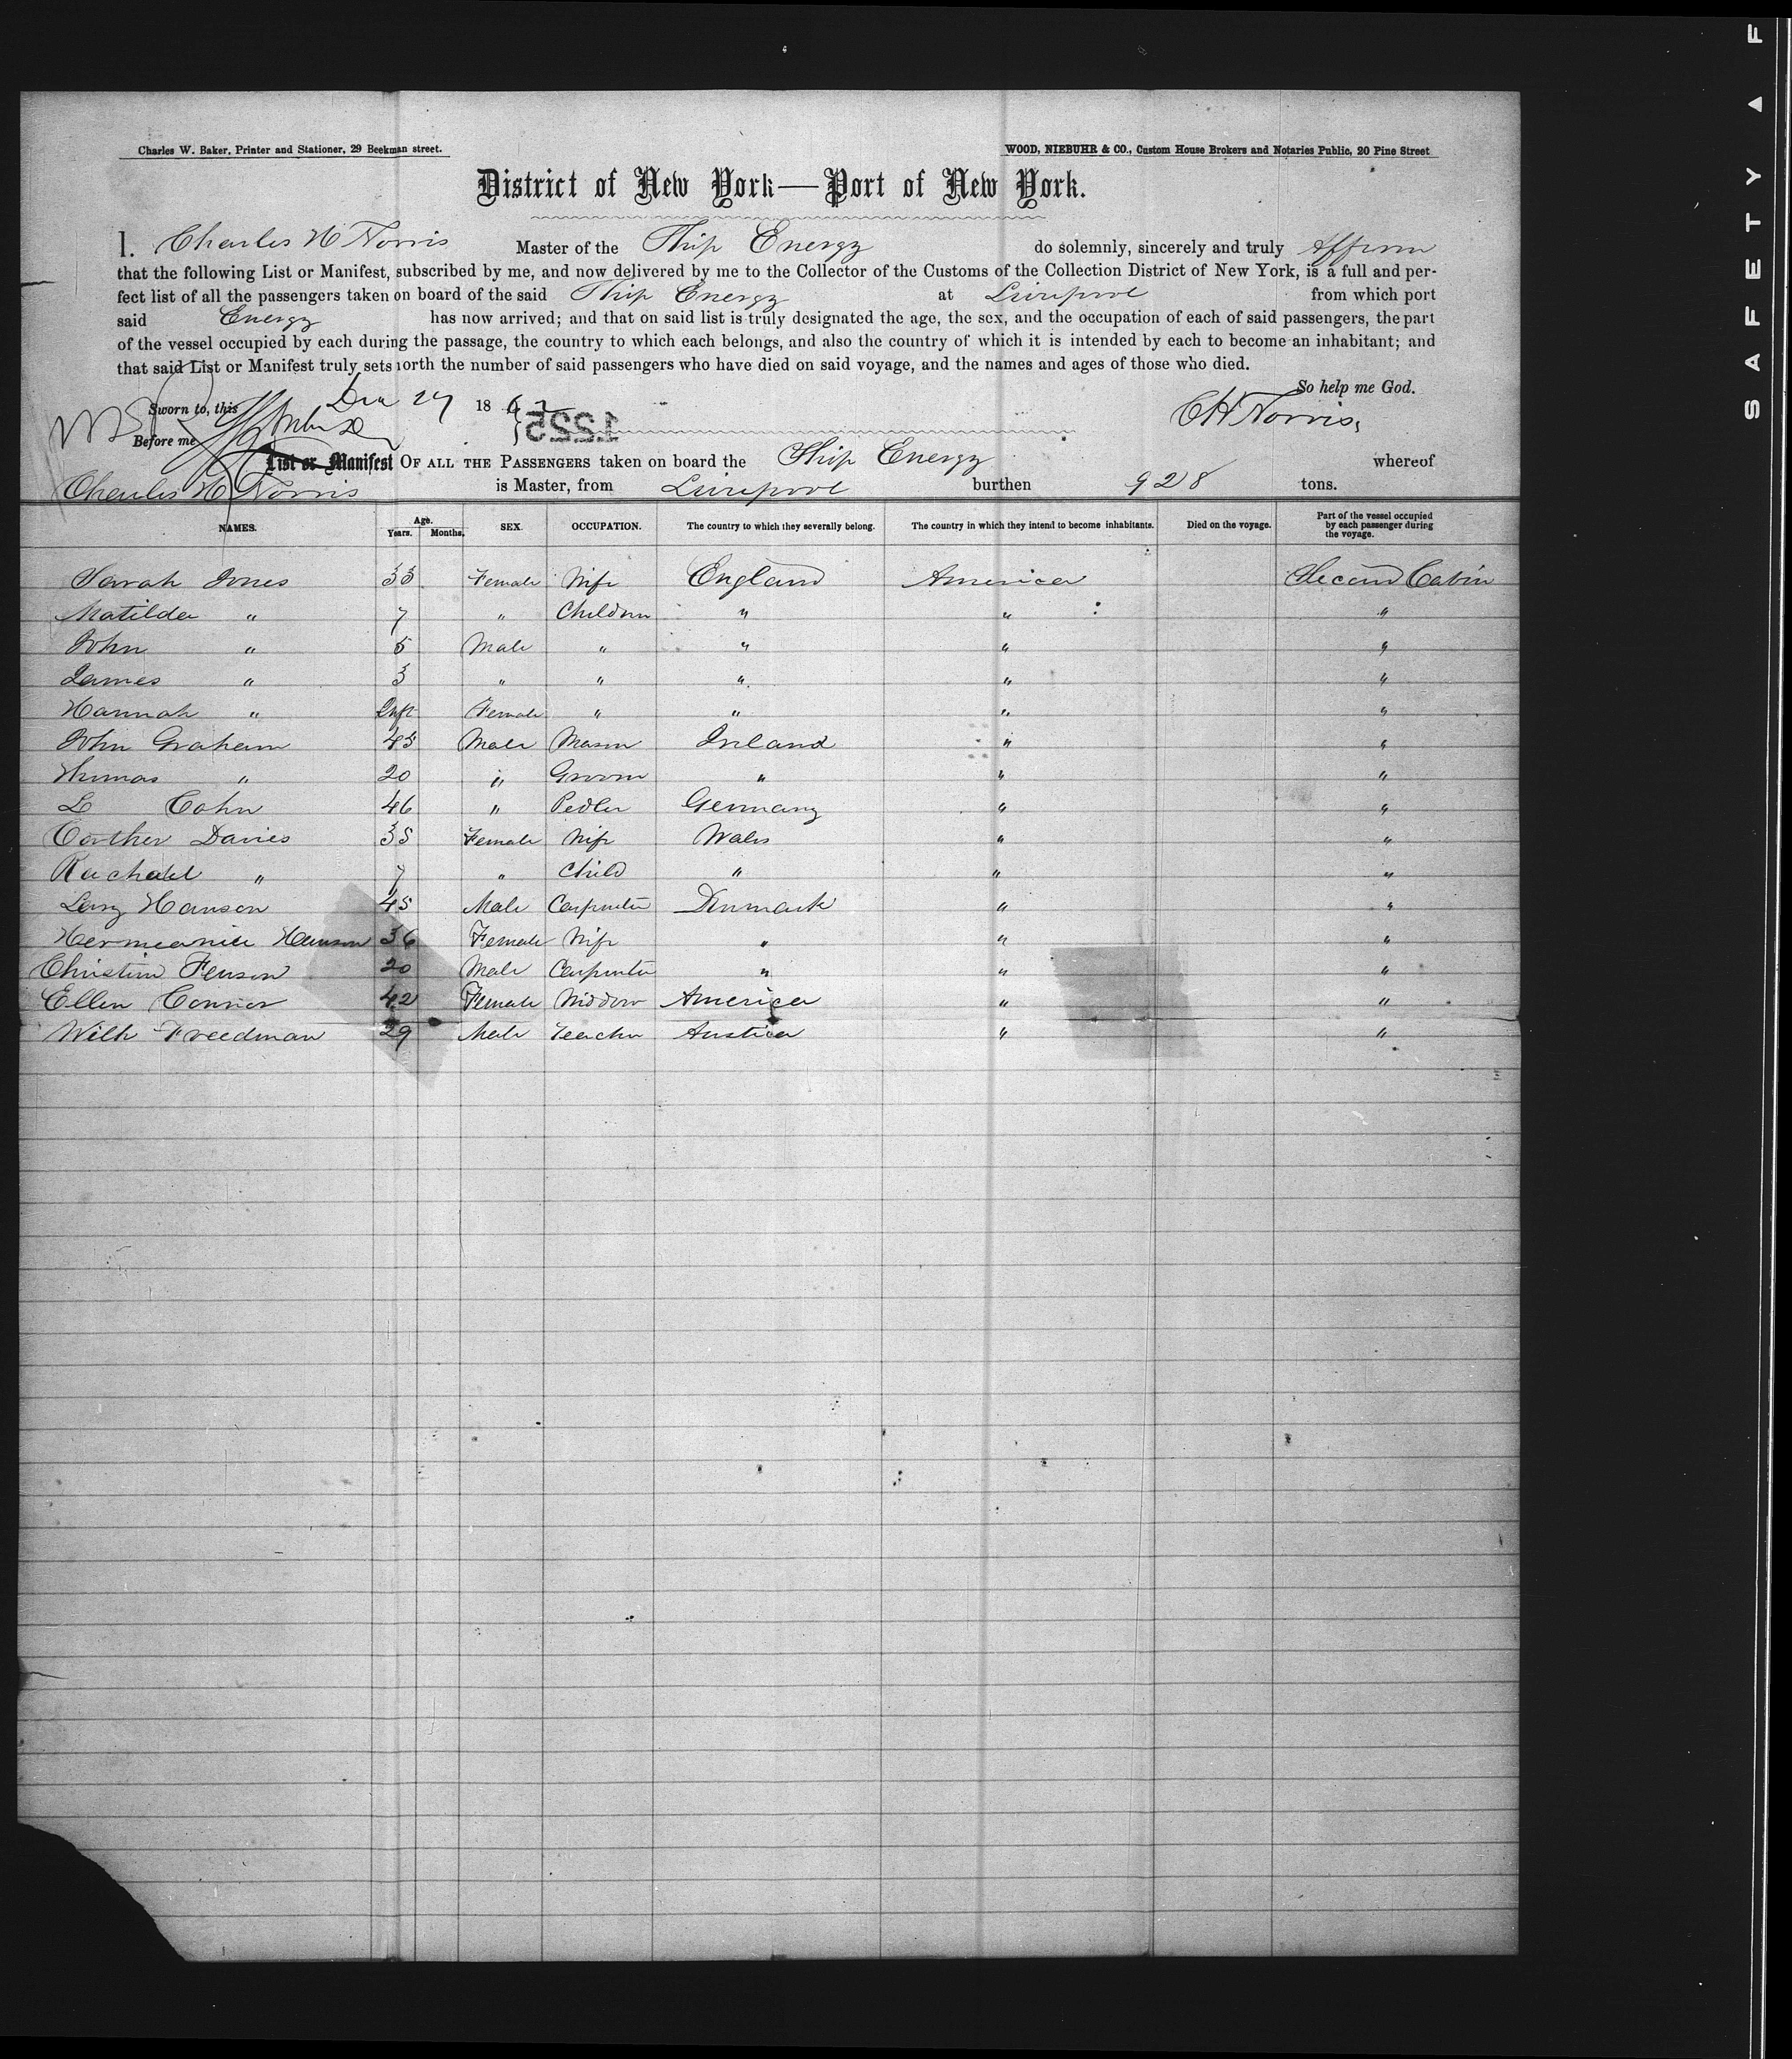 SAFETY ▲ F
Charles W. Baker, Printer and Stationer, 29 Beekman street.
WOOD, NIEBUHR & CO., Custom House Brokers and Notaries Public, 20 Pine Street
District of New York—Port of New York.
I. Charles H Norris Master of the Ship Energy do solemnly, sincerely and truly affirm
that the following List or Manifest, subscribed by me, and now delivered by me to the Collector of the Customs of the Collection District of New York, is a full and per-
fect list of all the passengers taken on board of the said Ship Energy at Liverpool from which port
said Energy has now arrived; and that on said list is truly designated the age, the sex, and the occupation of each of said passengers, the part
of the vessel occupied by each during the passage, the country to which each belongs, and also the country of which it is intended by each to become an inhabitant; and
that said List or Manifest truly sets forth the number of said passengers who have died on said voyage, and the names and ages of those who died.
So help me God.
Sworn to, this 18 1225 CH Norris
Before me
List or Manifest OF ALL THE PASSENGERS taken on board the Ship Energy whereof
Charles H Norris is Master, from Liverpool burthen 928 tons.
NAMES. Age. Years. Months. SEX. OCCUPATION. The country to which they severally belong. The country in which they intend to become inhabitants. Died on the voyage. Part of the vessel occupied by each passenger during the voyage.
Sarah Jones 33 Female Wife England America Second Cabin
Matilda " 7 " Children " " "
John " 5 Male " " " "
James " 3 " " " " "
Hannah " Inft Female " " " "
John Graham 45 Male Mason Ireland " "
Thomas " 20 " Groom " " "
L Cohn 46 " Pedler Germany " "
Davies 35 Female Wife Wales " "
Rachael " 7 " Child " " "
Hanson 45 Male Carpenter Denmark " "
Hanson 36 Female Wife " " "
20 Male Carpenter " " "
Ellen Connor 42 Female Widdow America " "
Freedman 29 Male Teacher Austria " "